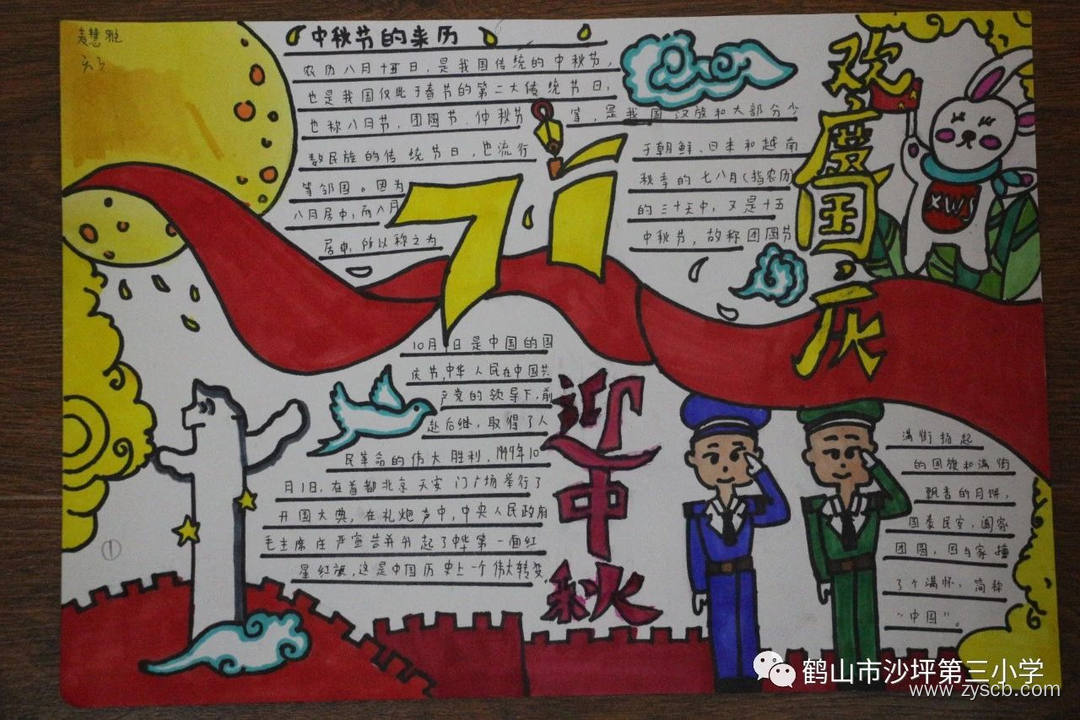 慧
中秋节的来历
农历八月十五日，是我国传统的中秋节，
也是我国仅此于春节的第二大传统节日，
也称八月节、团圆节、仲秋节 等，是我国汉族和大部分少
数民族的传统节日，也流行 于朝鲜、日本和越南
等邻国。因为 秋季的七八月（指农历
八月居中，而八月 的三十天中，又是十五
居中，所以称之为 中秋节，故称团圆节
71
欢度国庆
XWS
10月1日是中国的国
庆节，中华人民在中国共
产党的领导下，前
赴后继，取得了人
民革命的伟大胜利，1949年10
月1日，在首都北京天安门广场举行了
开国大典，在礼炮声中，中央人民政府
毛主席庄严宣告并升起了中华第一面红
星红旗，这是中国历史上一个伟大转变
迎中秋
满街扬起
的国旗和满街
飘香的月饼，
国泰民安，阖家
团圆，国与家撞
了个满怀，简称
“中国”。
①
鹤山市沙坪第三小学
www.zyscb.com